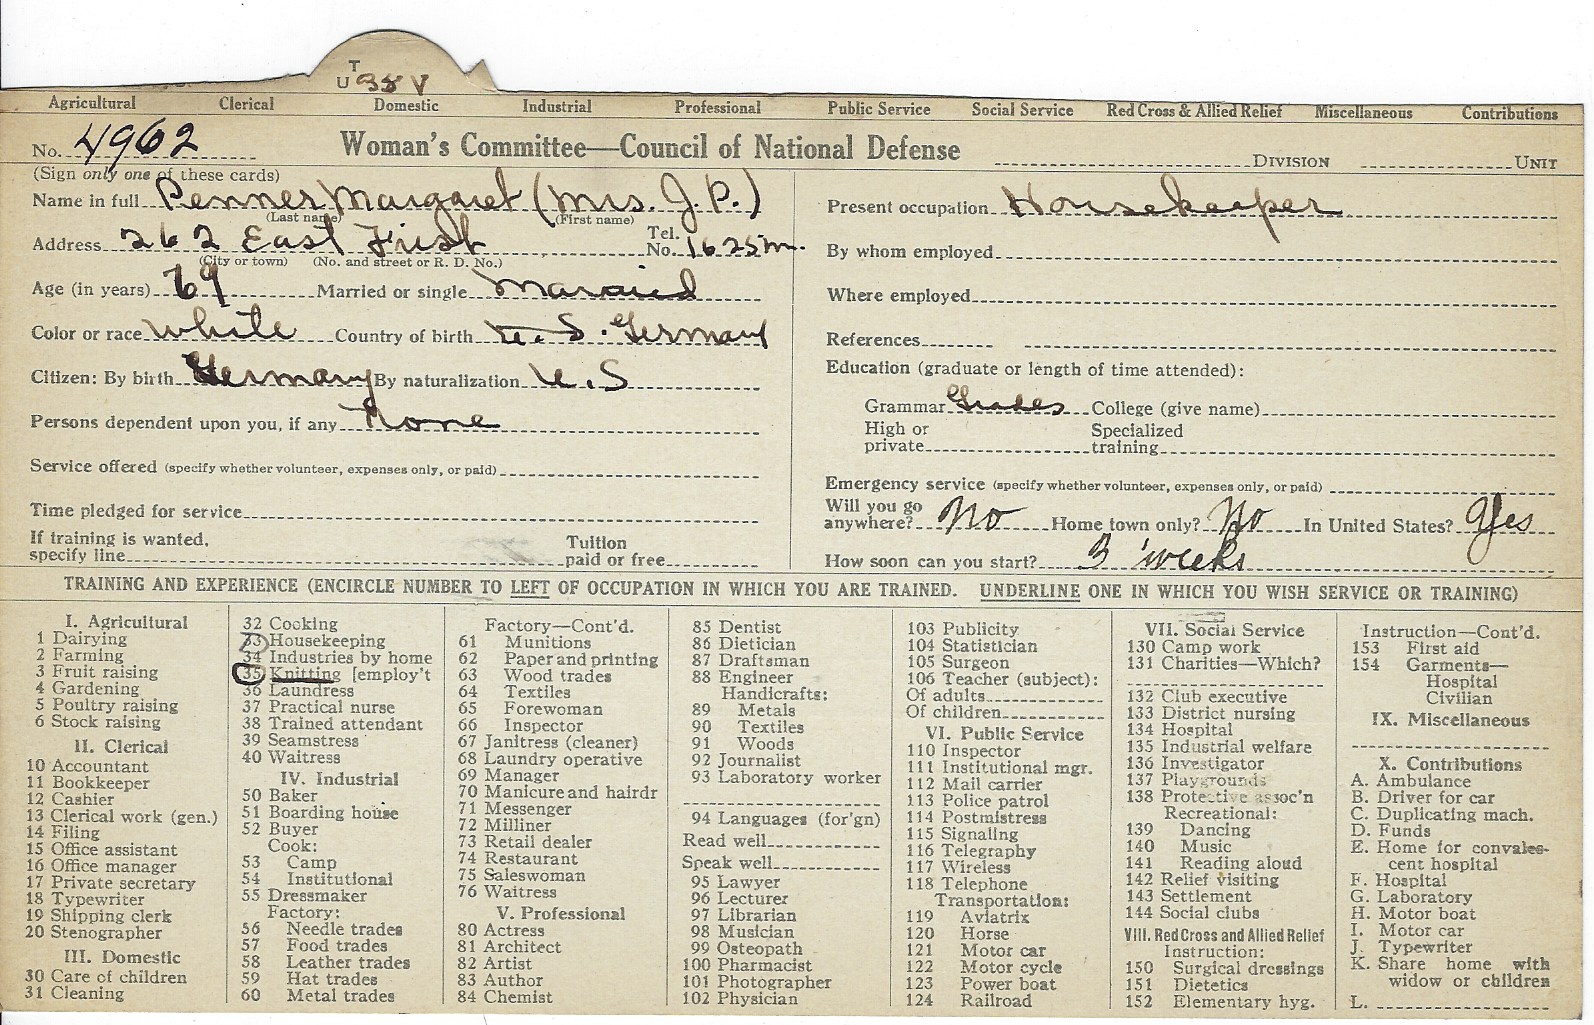 T
U 35 V
Agricultural Clerical Domestic Industrial Professional Public Service Social Service Red Cross & Allied Relief Miscellaneous Contributions
No. 4962 Woman's Committee—Council of National Defense DIVISION UNIT
(Sign only one of these cards)
Name in full Penner Margaret (Mrs. J. P.)
(Last name) (First name)
Address 262 East First Tel. No. 1625 m.
(City or town) (No. and street or R. D. No.)
Age (in years) 69 Married or single Married
Color or race white Country of birth U. S. Germany
Citizen: By birth Germany By naturalization U. S
Persons dependent upon you, if any None
Service offered (specify whether volunteer, expenses only, or paid)
Time pledged for service
If training is wanted, specify line Tuition paid or free
Present occupation Housekeeper
By whom employed
Where employed
References
Education (graduate or length of time attended):
Grammar Grades College (give name)
High or private Specialized training
Emergency service (specify whether volunteer, expenses only, or paid)
Will you go anywhere? No Home town only? No In United States? Yes
How soon can you start? 3 weeks
TRAINING AND EXPERIENCE (ENCIRCLE NUMBER TO LEFT OF OCCUPATION IN WHICH YOU ARE TRAINED. UNDERLINE ONE IN WHICH YOU WISH SERVICE OR TRAINING)
I. Agricultural
1 Dairying
2 Farming
3 Fruit raising
4 Gardening
5 Poultry raising
6 Stock raising
II. Clerical
10 Accountant
11 Bookkeeper
12 Cashier
13 Clerical work (gen.)
14 Filing
15 Office assistant
16 Office manager
17 Private secretary
18 Typewriter
19 Shipping clerk
20 Stenographer
III. Domestic
30 Care of children
31 Cleaning
32 Cooking
33 Housekeeping
34 Industries by home
35 Knitting [employ't
36 Laundress
37 Practical nurse
38 Trained attendant
39 Seamstress
40 Waitress
IV. Industrial
50 Baker
51 Boarding house
52 Buyer
Cook:
53 Camp
54 Institutional
55 Dressmaker
Factory:
56 Needle trades
57 Food trades
58 Leather trades
59 Hat trades
60 Metal trades
Factory—Cont'd.
61 Munitions
62 Paper and printing
63 Wood trades
64 Textiles
65 Forewoman
66 Inspector
67 Janitress (cleaner)
68 Laundry operative
69 Manager
70 Manicure and hairdr
71 Messenger
72 Milliner
73 Retail dealer
74 Restaurant
75 Saleswoman
76 Waitress
V. Professional
80 Actress
81 Architect
82 Artist
83 Author
84 Chemist
85 Dentist
86 Dietician
87 Draftsman
88 Engineer
Handicrafts:
89 Metals
90 Textiles
91 Woods
92 Journalist
93 Laboratory worker
94 Languages (for'gn)
Read well
Speak well
95 Lawyer
96 Lecturer
97 Librarian
98 Musician
99 Osteopath
100 Pharmacist
101 Photographer
102 Physician
103 Publicity
104 Statistician
105 Surgeon
106 Teacher (subject):
Of adults
Of children
VI. Public Service
110 Inspector
111 Institutional mgr.
112 Mail carrier
113 Police patrol
114 Postmistress
115 Signaling
116 Telegraphy
117 Wireless
118 Telephone
Transportation:
119 Aviatrix
120 Horse
121 Motor car
122 Motor cycle
123 Power boat
124 Railroad
VII. Social Service
130 Camp work
131 Charities—Which?
132 Club executive
133 District nursing
134 Hospital
135 Industrial welfare
136 Investigator
137 Playgrounds
138 Protective assoc'n
Recreational:
139 Dancing
140 Music
141 Reading aloud
142 Relief visiting
143 Settlement
144 Social clubs
VIII. Red Cross and Allied Relief
Instruction:
150 Surgical dressings
151 Dietetics
152 Elementary hyg.
Instruction—Cont'd.
153 First aid
154 Garments—
Hospital
Civilian
IX. Miscellaneous
X. Contributions
A. Ambulance
B. Driver for car
C. Duplicating mach.
D. Funds
E. Home for convales-
cent hospital
F. Hospital
G. Laboratory
H. Motor boat
I. Motor car
J. Typewriter
K. Share home with
widow or children
L.